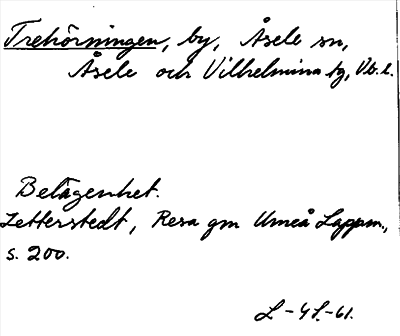 Trehörningen, by, Åsele sn,
Åsele och Vilhelmina tg, Vb. l.
Belägenhet.
Zetterstedt, Resa gm Umeå Lappm.,
s. 200.